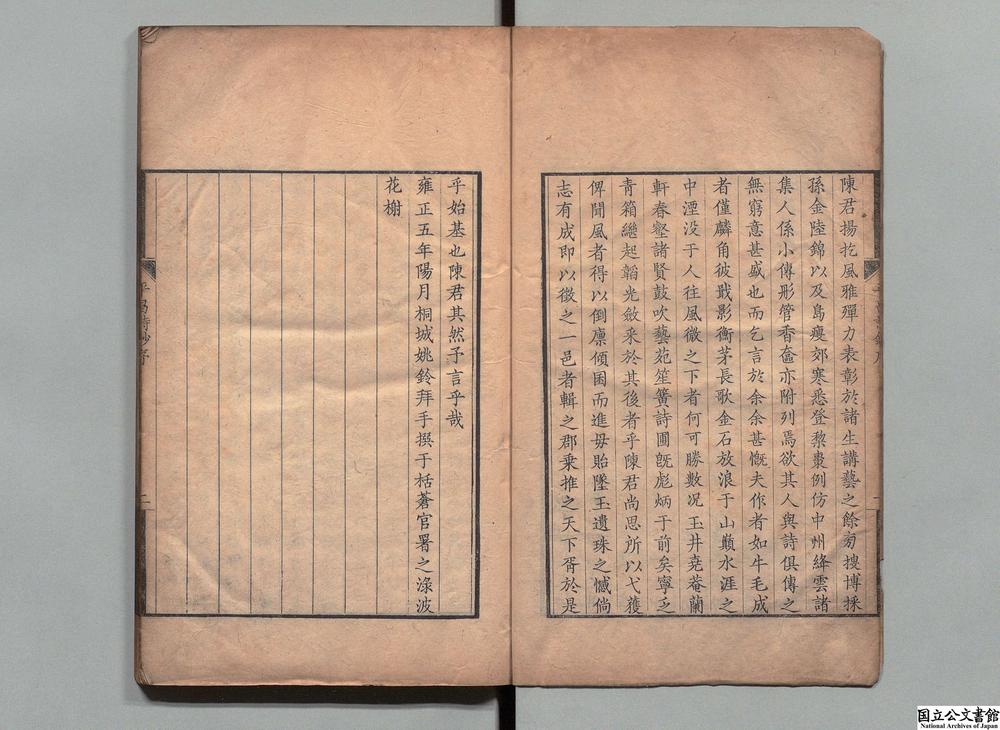 陳君揚扢風雅殫力表彰於諸生講藝之餘旁搜博採
孫金陸錦以及島瘦郊寒悉登棃棗例仿中州絳雲諸
集人係小傳形管香奩亦附列焉欲其人與詩俱傳之
無窮意甚盛也而乞言於余余甚慨夫作者如牛毛成
者僅麟角彼戢影衡茅長歌金石放浪于山巔水涯之
中湮没于人往風微之下者何可勝數况玉井堯菴蘭
軒春壑諸賢鼓吹藝苑笙簧詩圃旣彪炳于前矣寧乏
青箱繼起韜光斂采於其後者乎陳君尚思所以弋獲
俾聞風者得以倒廪傾囷而進毋貽墜玉遺珠之憾倘
志有成即以徴之一邑者輯之郡乗推之天下胥於是
乎始基也陳君其然予言乎哉
雍正五年陽月桐城姚鈴拜手撰于栝蒼官署之淥波
花榭
平昌詩鈔序
二
国立公文書館
National Archives of Japan